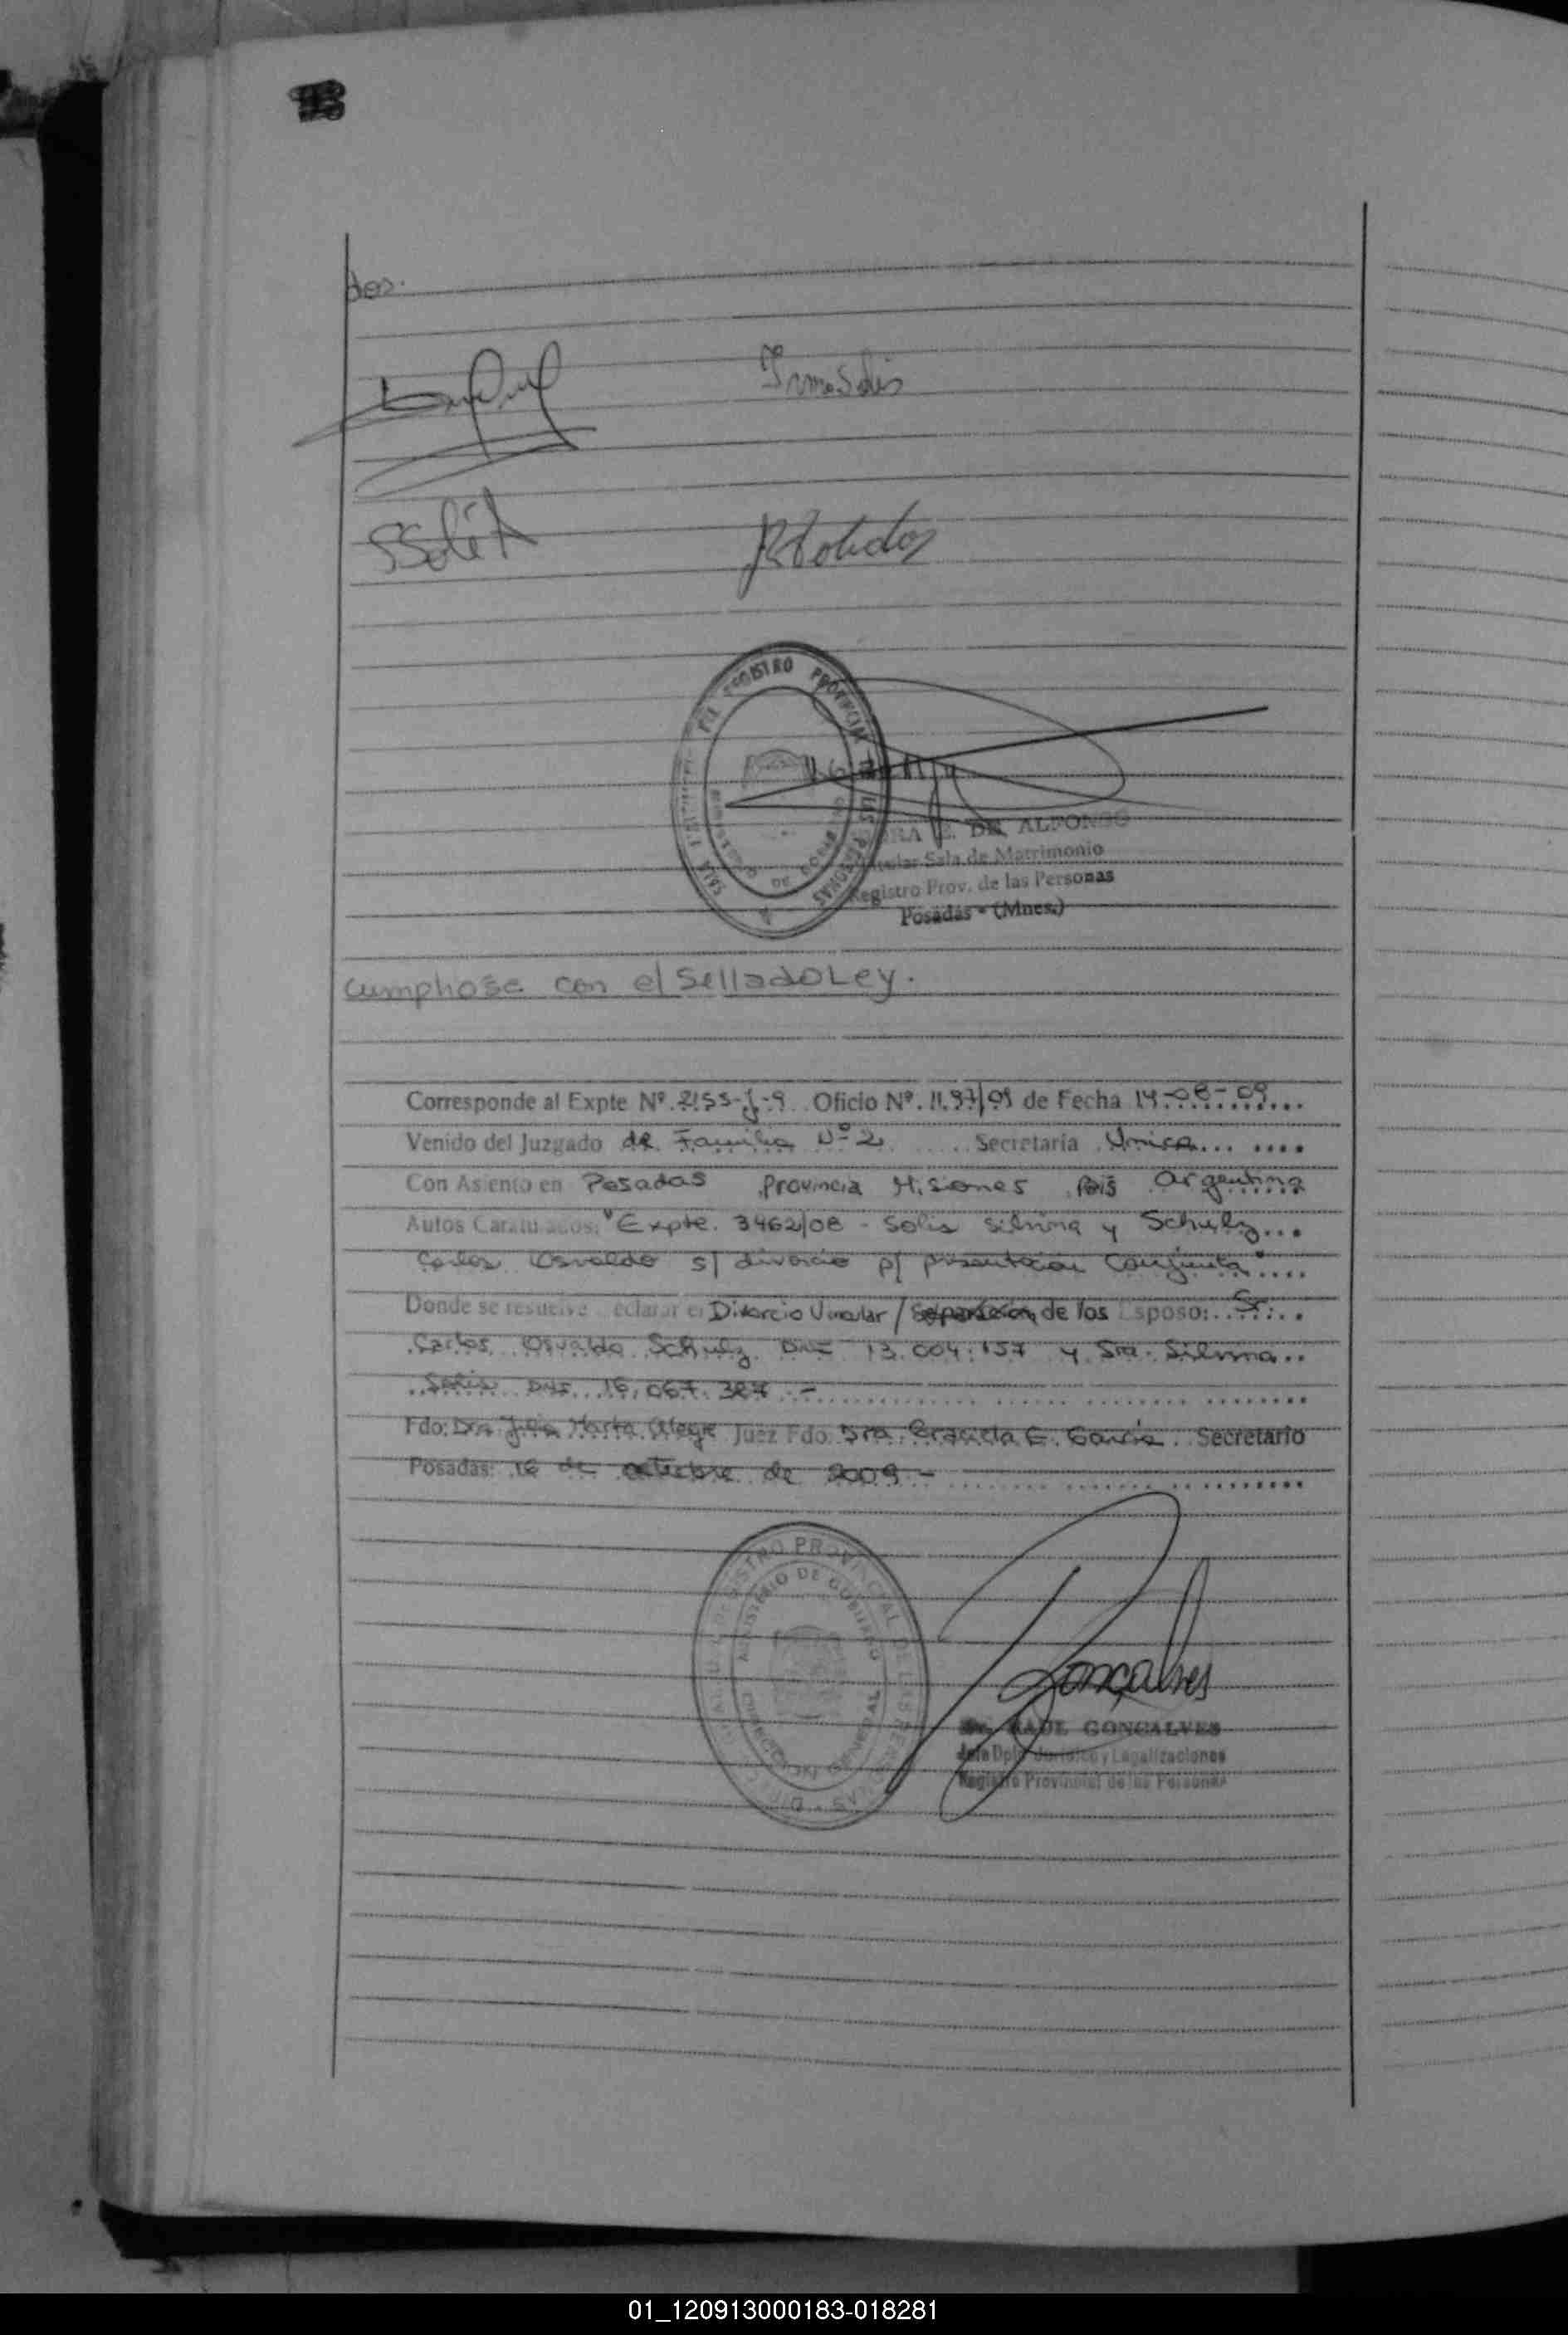 dos.
Irma Solis
REGISTRO PROVINCIAL DE LAS PERSONAS
DE ALFONSO
Titular Sala de Matrimonio
Registro Prov. de las Personas
Posadas - (Mnes.)
Cumpliose con el Sellado Ley.
Corresponde al Expte Nº. 2155-J-9 Oficio Nº. 1197/09 de Fecha 14-08-09
Venido del Juzgado de Familia Nº 2 Secretaría Unica
Con Asiento en Posadas Provincia Misiones Pais Argentina
Autos Caratulados: "Expte. 3462/08 - Solis Silvina y Schulz
Carlos Osvaldo s/ divorcio p/ presentación Conjunta"
Donde se resuelve declarar el Divorcio Vincular / Separación de los Esposo: Sr.
Carlos Osvaldo Schulz DNI 13.004.157 y Sra. Silvina
Solis DNI 16.067.327.-
Fdo: Dra Julia Marta Alegre Juez Fdo. Dra. Graciela E. García Secretario
Posadas: 16 de octubre de 2009.-
REGISTRO PROVINCIAL DE LAS PERSONAS
MINISTERIO DE GOBIERNO
DIRECCION GENERAL
Goncalves
Dr. RAUL GONCALVES
Jefe Dpto. Jurídico y Legalizaciones
Registro Provincial de las Personas
01_120913000183-018281